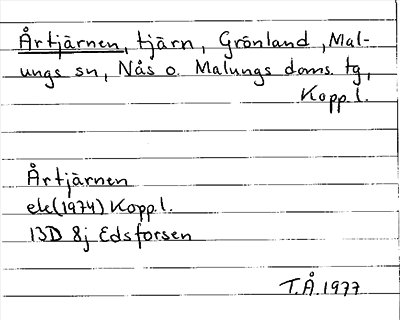 Årtjärnen, tjärn, Grönland, Mal-
ungs sn, Nås o. Malungs doms. tg,
Kopp.l.
Årtjärnen
ek(1974) Kopp.l.
13D 8j Edsforsen
T.Å.1977